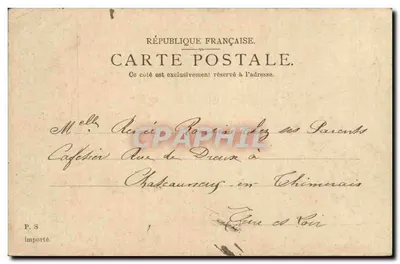 RÉPUBLIQUE FRANÇAISE.
CARTE POSTALE.
Ce coté est exclusivement réservé à l'adresse.
Melle Renée chez ses Parents
Cafetier Rue de Dreux à
Chateauneuf en Thimerais
Eure et Loir
P. S
importé.
CPRPHIL